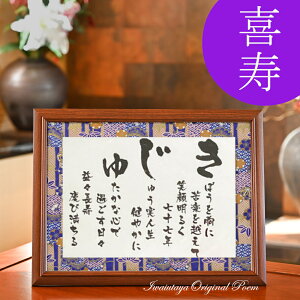 喜寿
きぼうを胸に
苦楽を越え
笑顔明るく
七十七年
じゅう実人生
健やかに
ゆたかな心で
過ごす日々
益々長寿
慶び満ちる
Iwaiutaya Original Poem